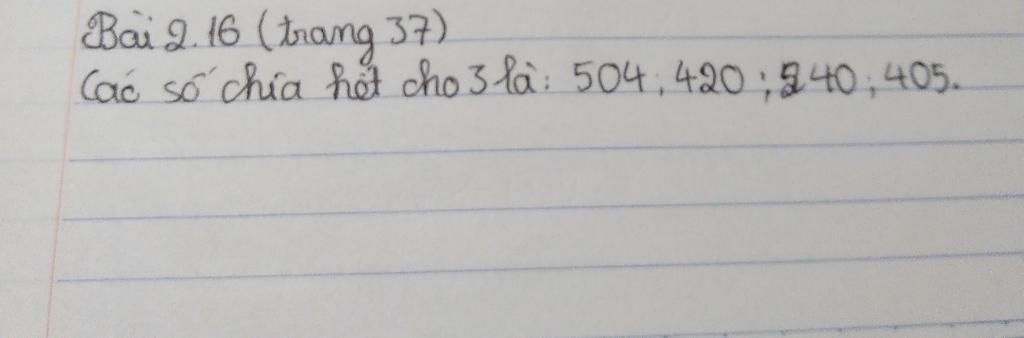 Bài 2.16 (trang 37)
Các số chia hết cho 3 là: 504; 420; 240; 405.